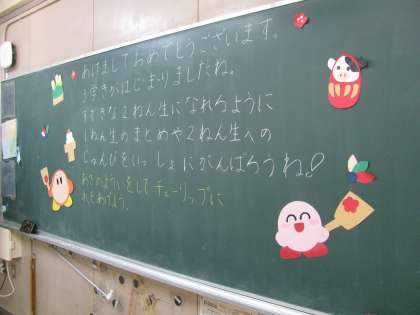 あけましておめでとうございます。
3学きがはじまりましたね。
すてきな2ねん生になれるように
1ねん生のまとめや2ねん生への
じゅんびをいっしょにがんばろうね!
あさのよういをしてチューリップに
水をあげよう。